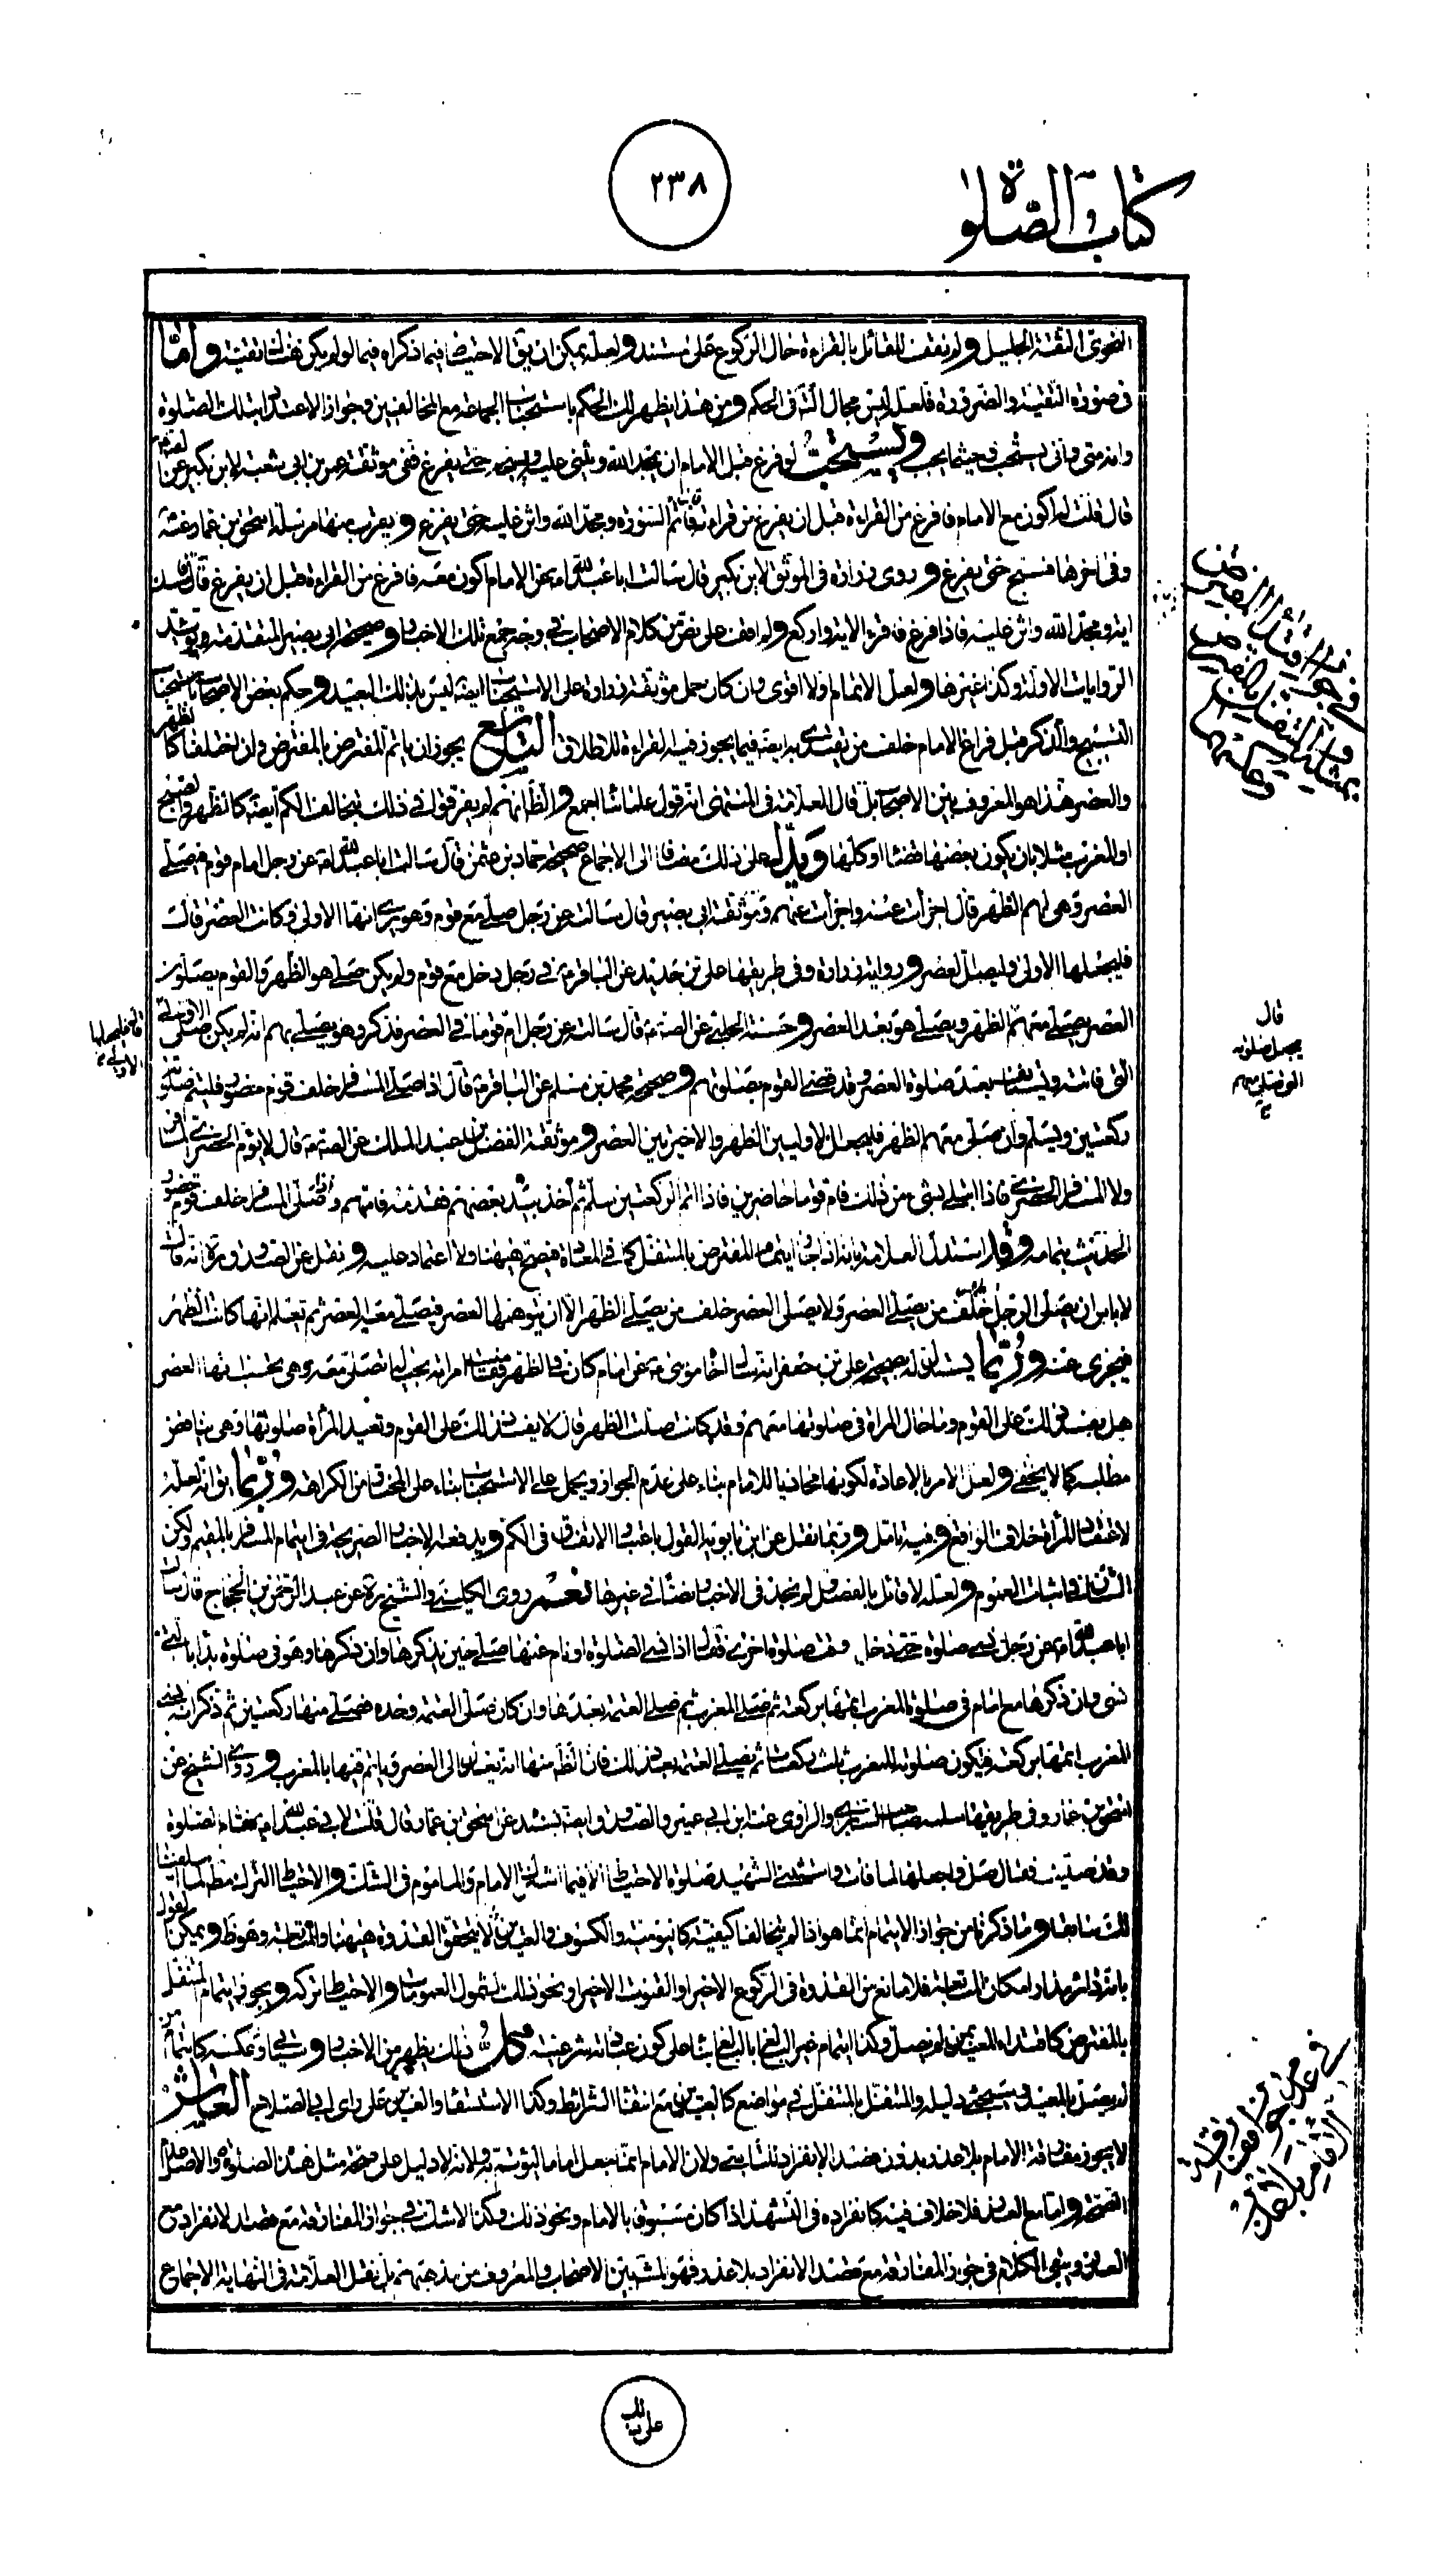 كتاب الصلوة
٢٣٨
النحوى الثقة الجليل ولم نقف للقائل بالقراءة حال الركوع على مستند ولعله يمكن ان يق الاحتياط فيما ذكراه فيما لو لم يكن هناك تقية واما
فى صورة التقية والضرورة فلعل ليس مجال الشك فى الحكم ومن هذا يظهر لك الحكم باستحباب الجماعة مع المخالفين وجواز الاعتداد بتلك الصلوة
وانه متى وانى يستحب وحيثما يجب ويستحب لو فرغ قبل الامام ان يمجد الله ويثنى عليه ويسبح حتى يفرغ ففى موثقة عمر بن ابى شعبة لابن بكير عن
قال قلت له اكون مع الامام فافرغ من القراءة قبل ان يفرغ من قراءته قال فاتم السورة ومجد الله واثن عليه حتى يفرغ ويقرب منها مرسلة اسحق بن عمار عنه
وفى اخرها فسبح حتى يفرغ وروى زرارة فى الموثق لابن بكير قال سالت ابا عبد الله ع عن الامام اكون معه فافرغ من القراءة قبل ان يفرغ قال فامسك
اية ومجد الله واثن عليه فاذا فرغ فاقرء الاية واركع ولم اقف على نص من كلام الاصحاب فى وجه جمع تلك الاخبار وصحيحة ابى بصير المتقدمة ويؤيد
الروايات الاولة وكذا غيرها ولعل الاتمام اولا اقوى وان كان حمل موثقة زرارة على الاستحباب ايضا ليس بذلك البعيد وحكم بعض الاصحاب باستحباب
التسبيح والذكر قبل فراغ الامام خلف من يقتدى به ايضا فيما يجوز فيه القراءة للاطلاق التاسع يجوز ان ياتم المفترض بالمفترض وان اختلفا كالظهر
والعصر وهذا هو المعروف بين الاصحاب بل قال العلامة فى المنتهى انه قول علمائنا اجمع والظ انهم لم يفرقوا فى ذلك تخالف الكم ايضا كالظهر والصبح
او المغرب مثلا بان يكون بعضها قضاء او كلها ويدل على ذلك مضافا الى الاجماع صحيحة حماد بن عثمن قال سالت ابا عبد الله ع عن رجل امام قوم فيصلى
العصر وهى لهم الظهر قال اجزأت عنه واجزأت عنهم وموثقة ابى بصير قال سالت عن رجل صلى مع قوم وهو يرى انها الاولى وكانت العصر قال
فليجعلها الاولى وليصل العصر ورواية زرارة وفى طريقها على بن حديد عن الباقر ع فى رجل دخل مع قوم ولم يكن صلى هو الظهر والقوم يصلون
العصر يصلى معهم الظهر ويصلى هو بعد العصر وحسنة الحلبى عن الص ع قال سالت عن رجل ام قوما فى العصر فذكر وهو يصلى بهم انه لم يكن صلى الاولى
قال فليجعلها الاولى
التى فاتته ويستانف بعد صلوة العصر وقد قضى القوم بصلوتهم وصحيحة محمد بن مسلم عن الباقر ع قال اذا صلى المسافر خلف قوم حضور فليتم صلوته
ركعتين ويسلم وان صلى معهم الظهر فليجعل الاوليين الظهر والاخيرتين العصر وموثقة الفضل بن عبد الملك عن الص ع قال لا يؤم الحضرى المسافر
ولا المسافر الحضرى فاذا ابتلى بشئ من ذلك فام قوما حاضرين فاذا اتم الركعتين سلم ثم اخذ بيد بعضهم فقدمه فامهم واذا صلى المسافر خلف قوم حضور
الحديث بتمامه وقد استدل العلامة بانه اذا جاز ايتمام المفترض بالمتنفل كما فى المعادة فيصح هيهنا ولا اعتماد عليه ونقل عن الصدوق ره انه قال
لا باس ان يصلى الرجل الظهر خلف من يصلى العصر ولا يصلى العصر خلف من يصلى الظهر الا ان يتوهمها العصر فيصلى معه العصر ثم يعلم انها كانت الظهر
فيجزى عنه وربما يستدل له بصحيحة على بن جعفر انه سال اخاه موسى ع عن امام كان فى الظهر فقامت امراته بحياله تصلى معه وهى تحسب انها العصر
هل يفسد ذلك على القوم وما حال المراة فى صلوتها معهم وقد كانت صلت الظهر قال لا يفسد ذلك على القوم وتعيد المرأة صلوتها وهى ينافى
مطلبه كما لا يخفى ولعل الامر بالاعادة لكونها محاذيا للامام بناء على عدم الجواز ويحمل على الاستحباب بناء على المختار من الكراهة وربما يق انه لعله
لاعتقاد المرأة خلاف الواقع وفيه تامل وربما نقل عن ابن بابويه القول باعتبار الاتفاق فى الكم ويدفعه الاخبار الصريحة فى ايتمام المسافر بالمقيم ولكن
الشان فى اثبات العموم ولعله لا قائل بالفصل ولم نجد فى الاخبار نصا فى غيرها نعم روى الكلينى والشيخ ره عن عبد الرحمن بن الحجاج قال سالت
ابا عبد الله ع عن رجل نسى صلوة حتى دخل وقت صلوة اخرى فقال اذا نسى الصلوة او نام عنها صلى حين يذكرها وان ذكرها وهو فى صلوة بدأ بالتى
نسى وان ذكرها مع امام فى صلوة المغرب اتمها بركعة ثم صلى المغرب ثم صلى العتمة بعدها وان كان صلى العتمة وحده فصلى منها ركعتين ثم ذكر انه نسى
المغرب اتمها بركعة فيكون صلوته للمغرب ثلث ركعات ثم يصلى العتمة بعد ذلك فان الظ منها انه يعدل الى العصر وياتم فيها بالمغرب وروى الشيخ عن
اسحق بن عمار وفى طريقها سلمة صاحب السابرى والراوى عنه ابن ابى عمير والصدوق ايضا بسنده عن اسحق بن عمار قال قلت لابى عبد الله ع تقام الصلوة
وقد صليت فقال صل واجعلها لما فات واستثنى الشهيد صلوة الاحتياط الا فيما اشترك الامام والماموم فى الشك والاحتياط الترك مطلقا لما اسلفنا
لك سابقا وما ذكرنا من جواز الايتمام انما هو اذا لم يتخالفا كيفية كاليومية والكسوف والعيدين لا يتحقق القدوة هيهنا والمتابعة وهو ظ ويمكن القول
بانه اذا دار مدار امكان المتابعة فلا مانع من القدوة فى الركوع الاخير او القنوت الاخير ونحو ذلك لشمول العمومات والاحتياط تركه ويجوز ايتمام المتنفل
بالمفترض كاقتداء المعيد بمن لم يصل وكذا ايتمام غير البالغ بالبالغ بناء على كون عباداته شرعية كل ذلك يظهر من الاخبار وسيجئ وعكسه كايتمام من
لم يصل بالمعيد وسيجئ دليله والمتنفل بالمتنفل فى مواضع كالعيدين مع انتفاء الشرائط وكذا الاستسقاء والغدير على راى ابى الصلاح العاشر
لا يجوز مفارقة الامام بلا عذر وبدون قصد الانفراد للتاسى ولان الامام انما جعل اماما ليؤتم به ولانه لا دليل على صحة مثل هذه الصلوة والاصل عدم
الصحة واما مع العذر فلا خلاف فيه كانفراده فى التشهد اذا كان مسبوقا بالامام ونحو ذلك وكذا لا شك فى جواز المفارقة مع قصد الانفراد مع
العذر وبقى الكلام فى جواز المفارقة مع قصد الانفراد بلا عذر فهو المش بين الاصحاب والمعروف من مذهبهم بل نقل العلامة فى النهاية الاجماع
قال
يجعل صلوته
التى صلى بهم
عليه